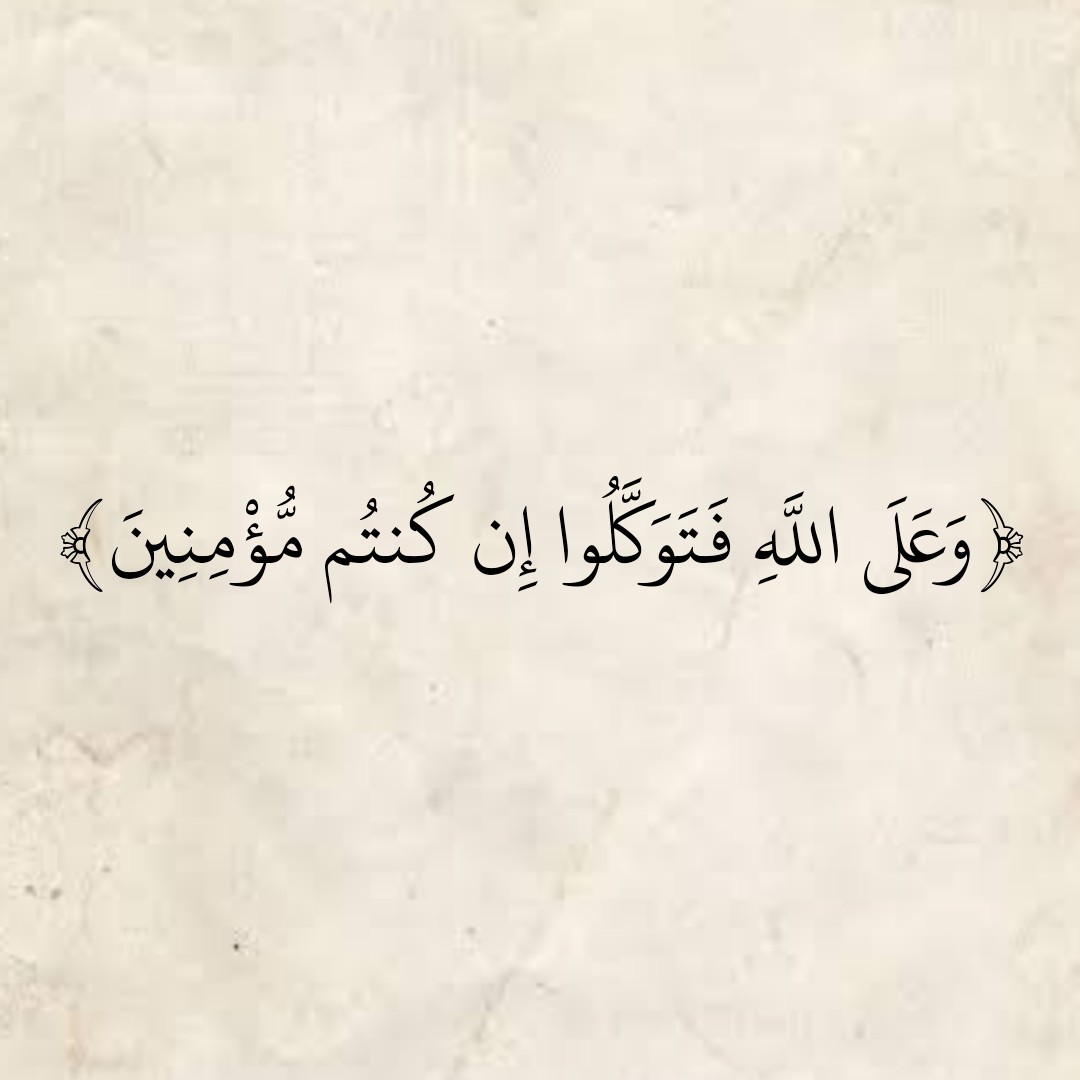 ﴿وَعَلَى اللَّهِ فَتَوَكَّلُوا إِن كُنتُم مُّؤْمِنِينَ﴾